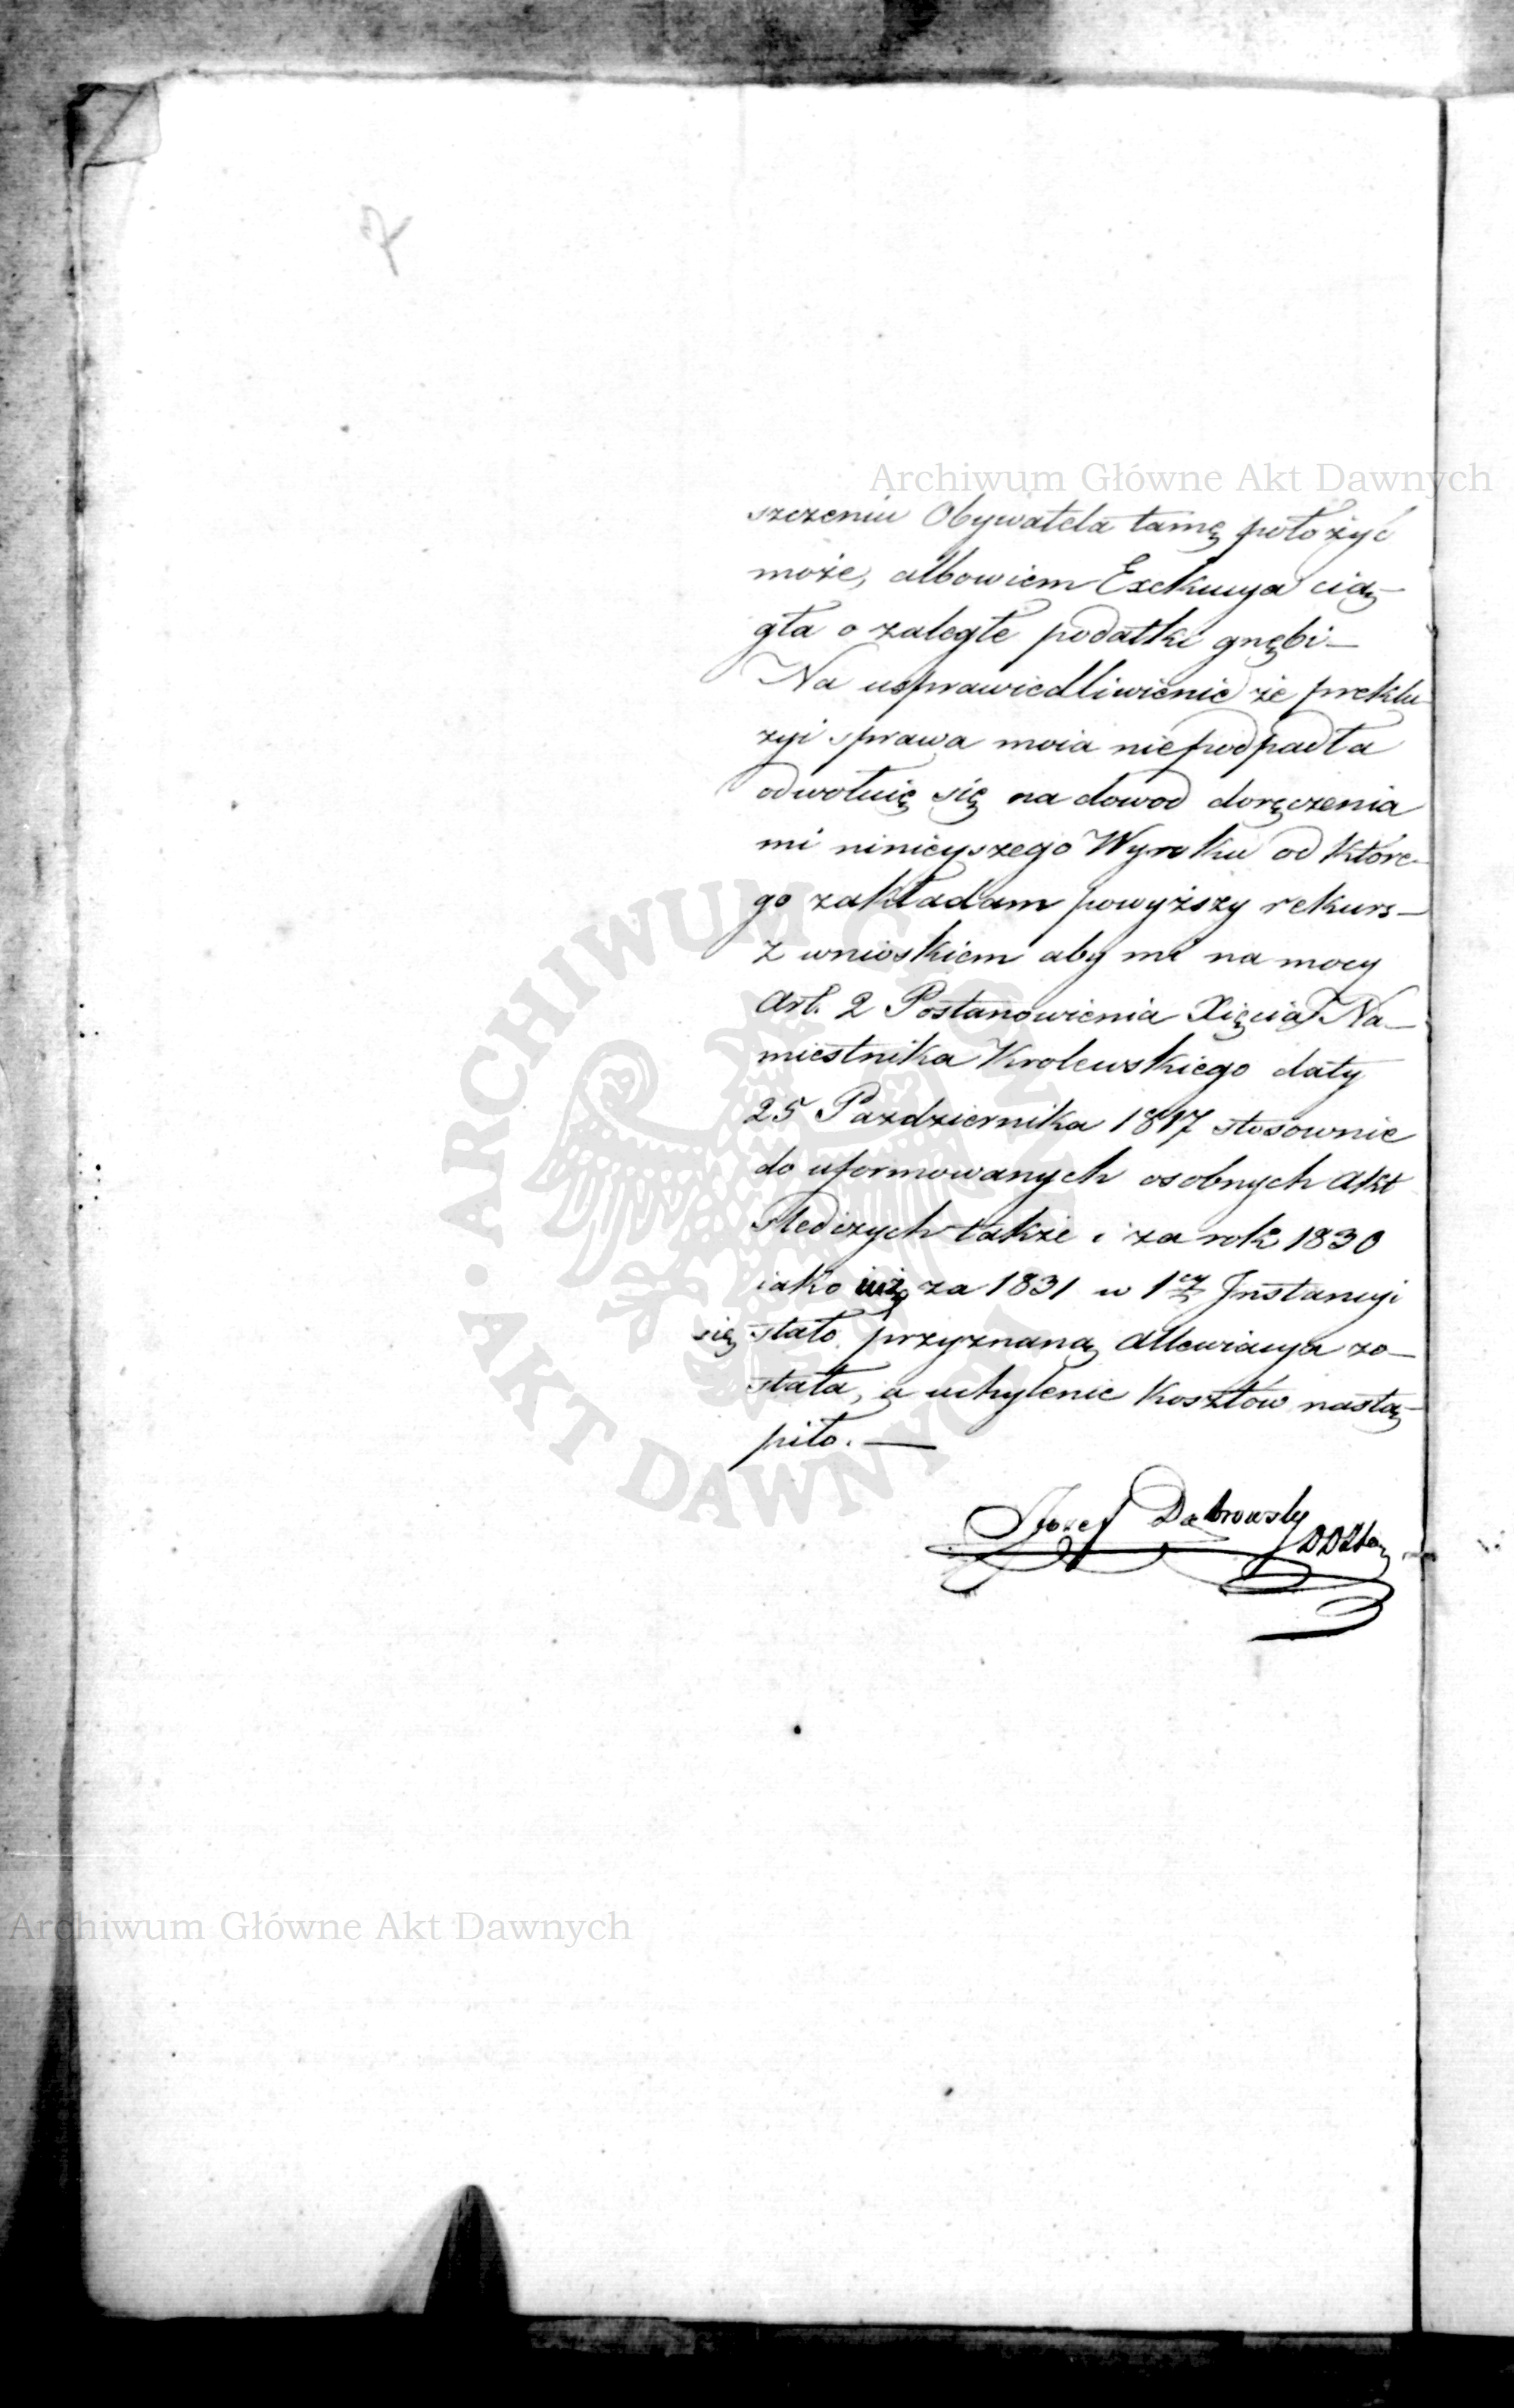 Archiwum Główne Akt Dawnych
szczeniu Obywatela tamę położyć
może, albowiem Exekucya cią-
gła o zaległe podatki gnębi —
Na usprawiedliwienie że preklu-
zyi sprawa moia niepodpadła
odwołuię się na dowod doręczenia
mi ninieyszego Wyroku od które-
go zakładam powyższy rekurs —
z wnioskiem aby mi na mocy
Art. 2 Postanowienia Xięcia Na-
miestnika Krolewskiego daty
25 Pazdziernika 1817 stosownie
do uformowanych osobnych Akt
śledczych także i za rok 1830
iako iuż za 1831 w 1ey Instancyi
się stało przyznaną Allewiacya zo-
stała, a uchylenie Kosztów nastą-
piło. —
Jozef Dąbrowsky
ARCHIWUM GŁÓWNE AKT DAWNYCH
Archiwum Główne Akt Dawnych